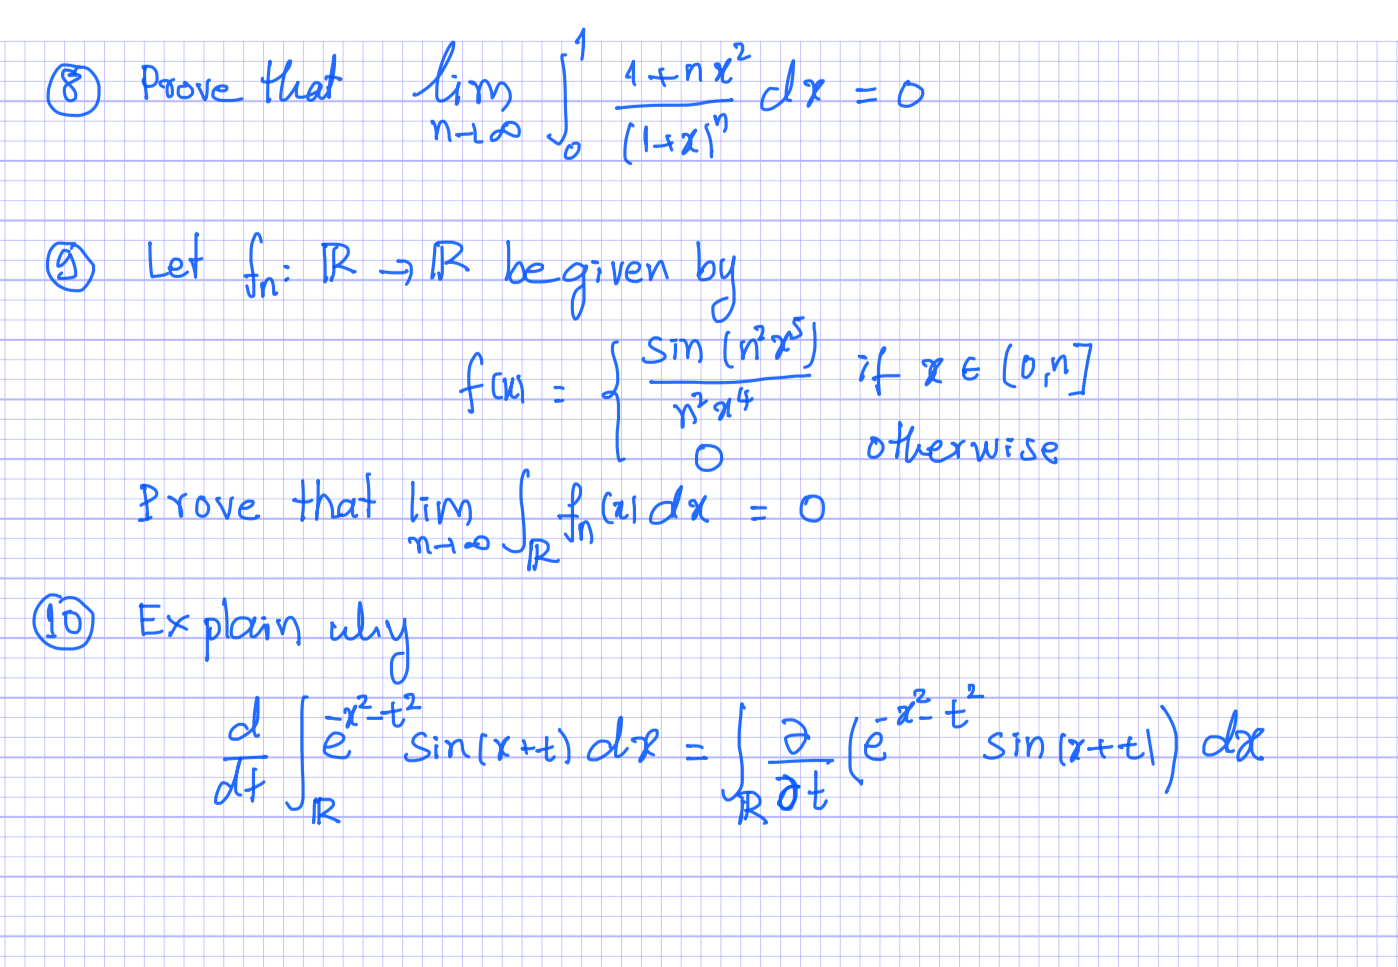 ⑧ Prove that lim_{n→∞} ∫_0^1 (1+nx^2)/(1+x)^n dx = 0
⑨ Let f_n: ℝ → ℝ be given by
f(x) = { sin(n^2x^5)/(n^2x^4) if x ∈ (0,n]
0 otherwise
Prove that lim_{n→∞} ∫_ℝ f_n(x) dx = 0
⑩ Explain why
d/dt ∫_ℝ e^{-x^2-t^2} sin(x+t) dx = ∫_ℝ ∂/∂t (e^{-x^2-t^2} sin(x+t)) dx